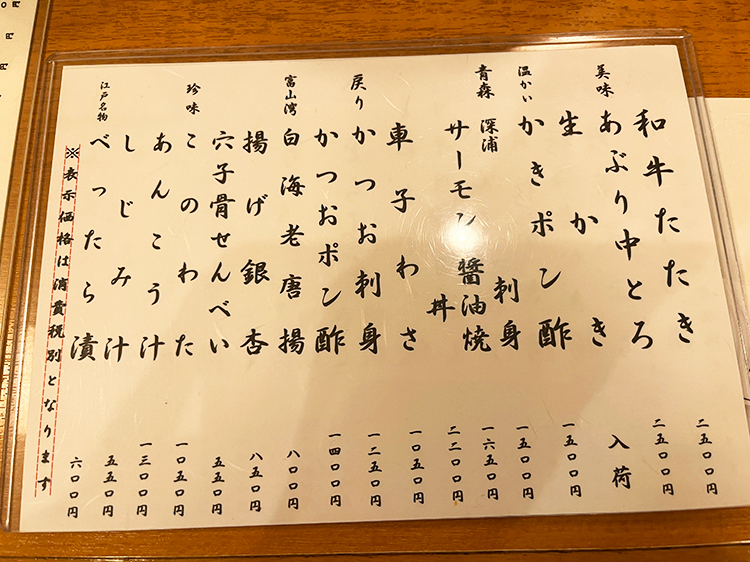 和牛たたき 二五〇〇円
美味 あぶり中とろ 二五〇〇円
生かき 入荷
温かい かきポン酢 一五〇〇円
青森 深浦 サーモン 刺身 一五〇〇円
醤油焼 一六五〇円
丼 二二〇〇円
車子わさ 一〇五〇円
戻り かつお刺身 一二五〇円
かつおポン酢 一四〇〇円
富山湾 白海老唐揚 八〇〇円
揚げ銀杏 八五〇円
穴子骨せんべい 五五〇円
珍味 このわた 一〇五〇円
あんこう汁 一三〇〇円
しじみ汁 五五〇円
江戸名物 べったら漬 六〇〇円
※表示価格は消費税別となります